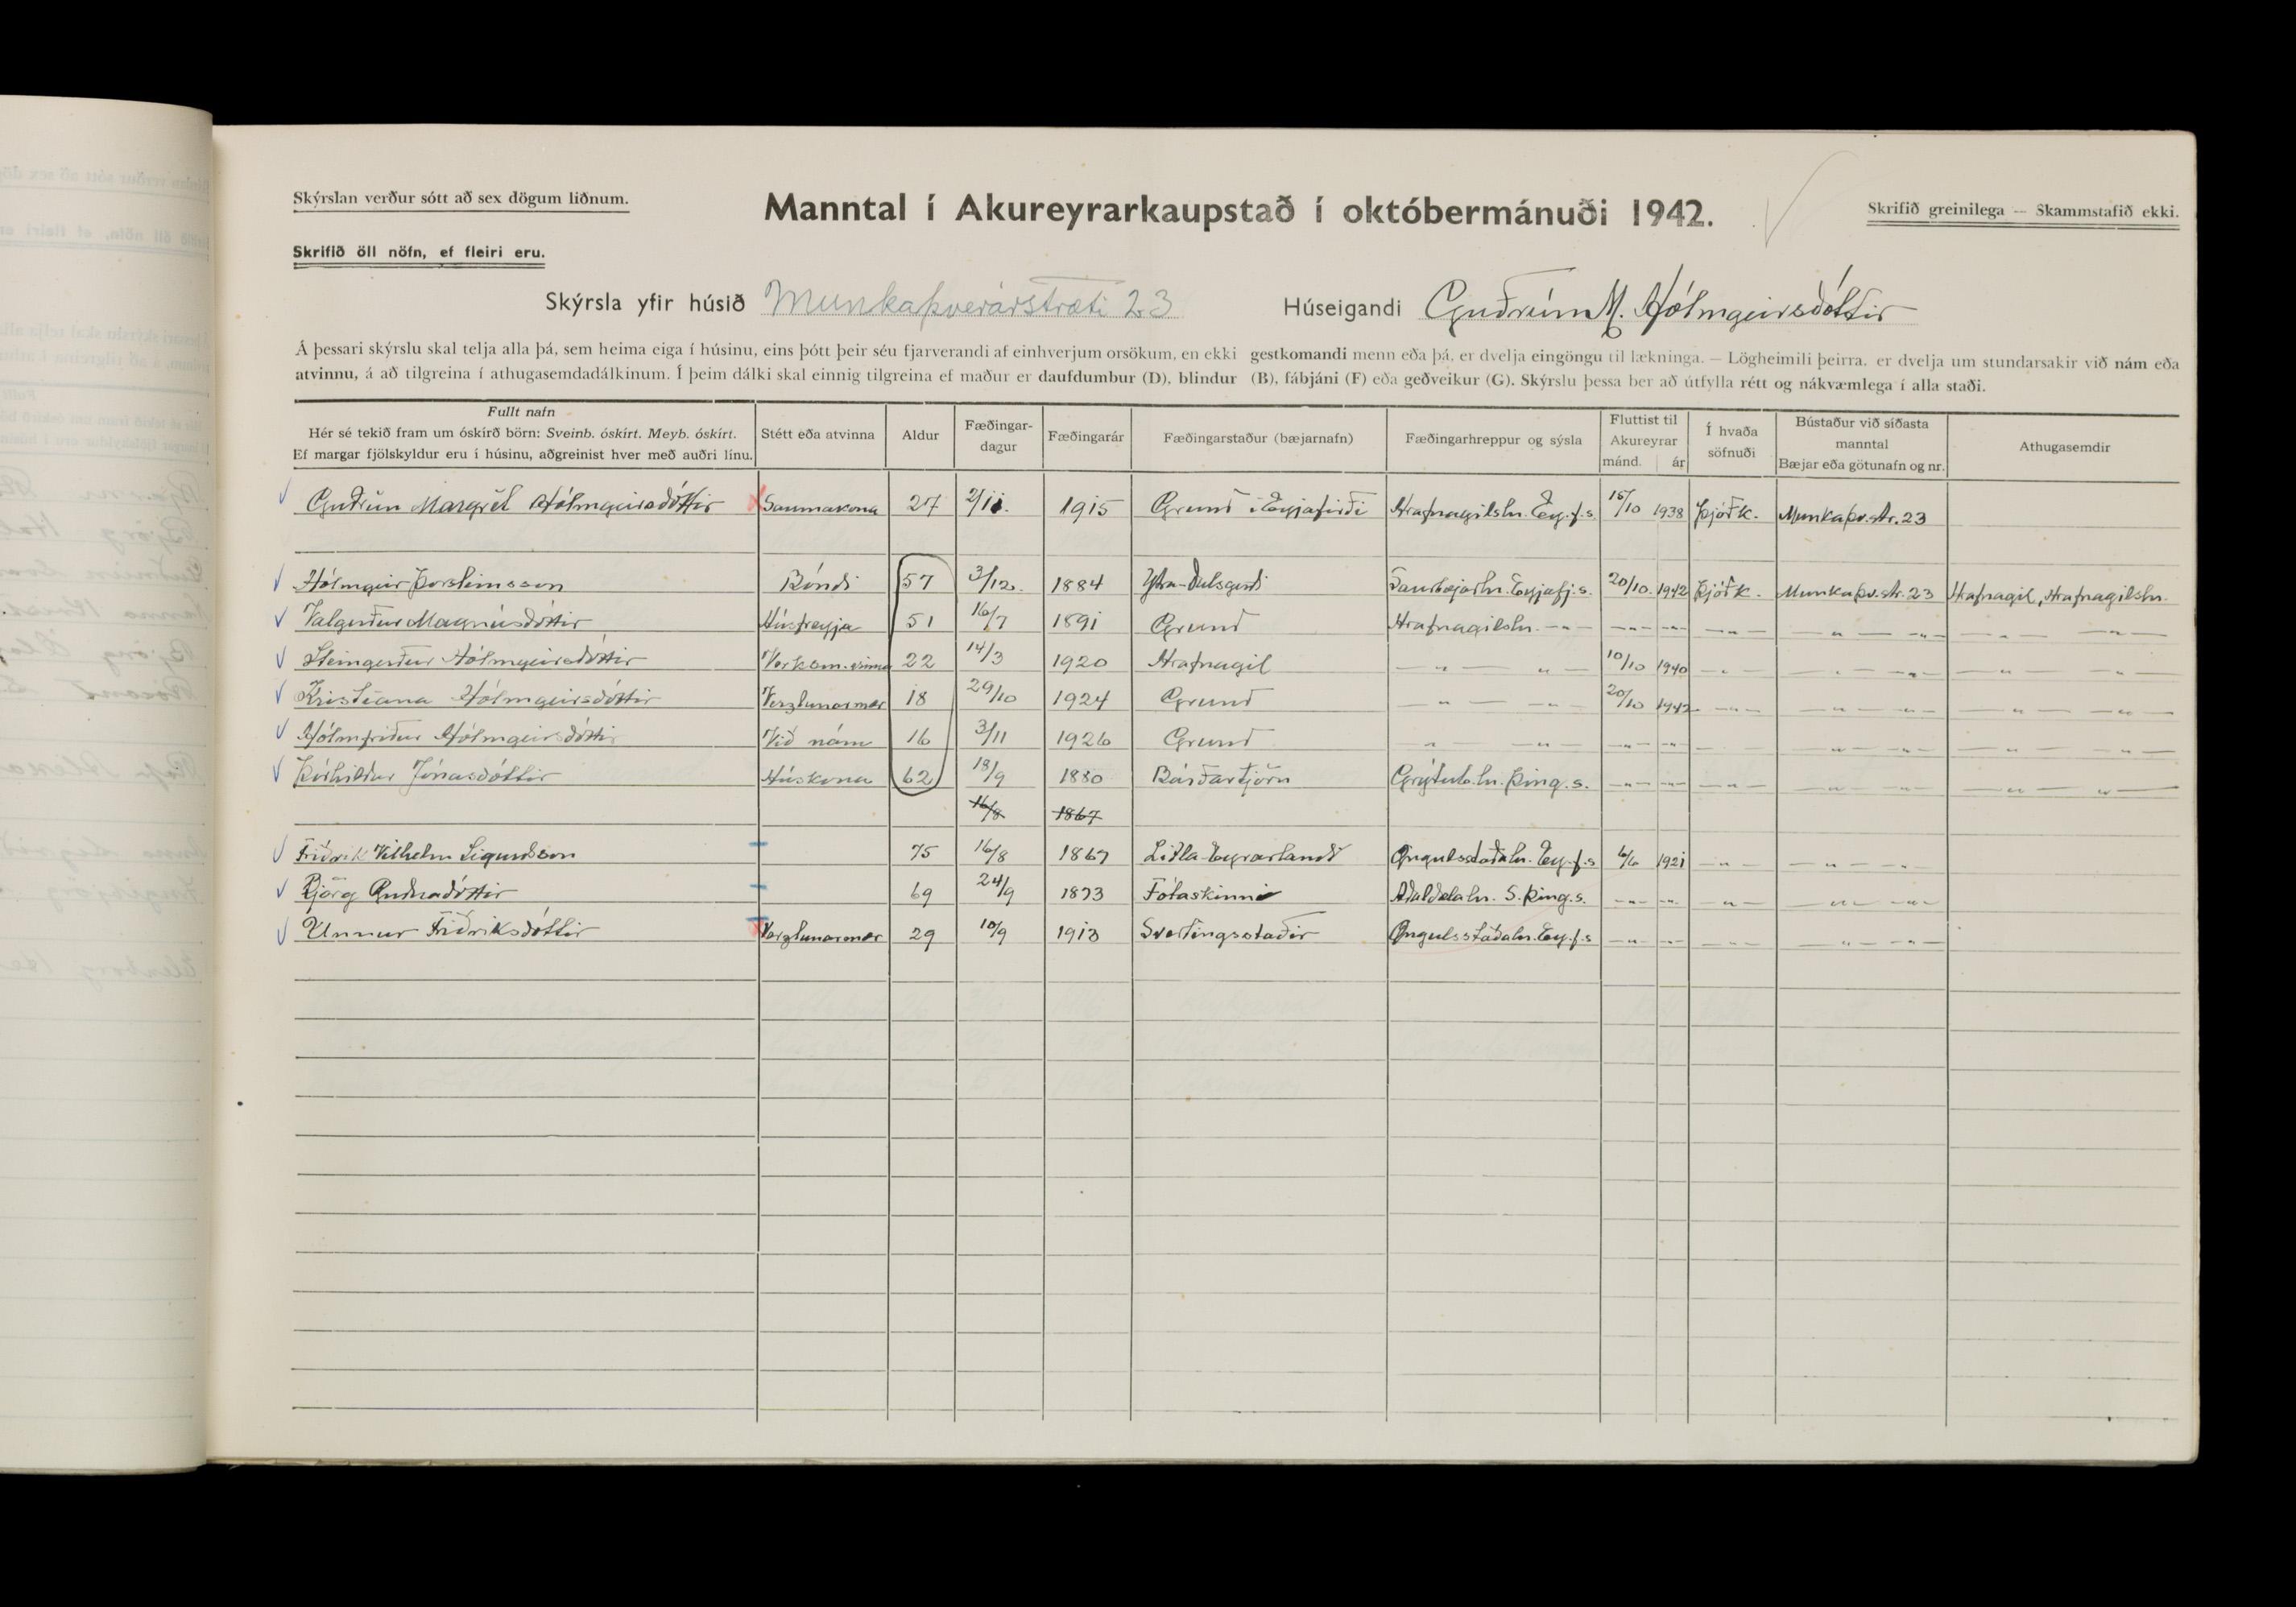 Skýrslan verður sótt að sex dögum liðnum.
Manntal í Akureyrarkaupstað í októbermánuði 1942.
Skrifið greinilega — Skammstafið ekki.
Skrifið öll nöfn, ef fleiri eru.
Skýrsla yfir húsið Munkaþverárstræti 23 Húseigandi Guðrún M. Hólmgeirsdóttir
Á þessari skýrslu skal telja alla þá, sem heima eiga í húsinu, eins þótt þeir séu fjarverandi af einhverjum orsökum, en ekki gestkomandi menn eða þá, er dvelja eingöngu til lækninga. — Lögheimili þeirra, er dvelja um stundarsakir við nám eða
atvinnu, á að tilgreina í athugasemdadálkinum. Í þeim dálki skal einnig tilgreina ef maður er daufdumbur (D), blindur (B), fábjáni (F) eða geðveikur (G). Skýrslu þessa ber að útfylla rétt og nákvæmlega í alla staði.
Fullt nafn
Hér sé tekið fram um óskírð börn: Sveinb. óskírt. Meyb. óskírt.
Ef margar fjölskyldur eru í húsinu, aðgreinist hver með auðri línu.
Stétt eða atvinna
Aldur
Fæðingar-
dagur
Fæðingarár
Fæðingarstaður (bæjarnafn)
Fæðingarhreppur og sýsla
Fluttist til
Akureyrar
mánd. ár
Í hvaða
söfnuði
Bústaður við síðasta
manntal
Bæjar eða götunafn og nr.
Athugasemdir
Guðrún Margrét Hólmgeirsdóttir Saumakona 27 2/11. 1915 Grund í Eyjafirði Hrafnagilshr. Eyj.f.s. 15/10 1938 Þjóðk. Munkaþv.str. 23
Hólmgeir Þorsteinsson Bóndi 57 3/12. 1884 Ytra-Dalsgerði Saurbæjarhr. Eyjafj.s. 20/10. 1942 Þjóðk. Munkaþv.str. 23 Hrafnagil, Hrafnagilshr.
Valgerður Magnúsdóttir Húsfreyja 51 16/7 1891 Grund Hrafnagilshr. —„— —„— —„— —„— —„— —„— —„— —„—
Steingerður Hólmgeirsdóttir Verksm.vinna 22 14/3 1920 Hrafnagil —„— —„— 10/10 1940 —„— —„— —„— —„— —„—
Kristíana Hólmgeirsdóttir Verzlunarmær 18 29/10 1924 Grund —„— —„— 20/10 1942 —„— —„— —„— —„— —„—
Hólmfríður Hólmgeirsdóttir Við nám 16 3/11 1926 Grund —„— —„— —„— —„— —„— —„— —„— —„— —„—
Þórhildur Jónasdóttir Húskona 62 18/9 1880 Bárðartjörn Grýtub.hr. Þing.s. —„— —„— —„— —„— —„— —„— —„—
16/8 1867
Friðrik Vilhelm Sigurðsson 75 16/8 1867 Litla-Eyrarlandi Öngulsstaðahr. Ey.f.s 6/6 1921 —„— —„— —„—
Björg Guðnadóttir 69 24/9 1873 Fótaskinni Aðaldælahr. S.Þing.s. —„— —„— —„— —„— —„—
Unnur Friðriksdóttir Verzlunarmær 29 10/9 1913 Svertingsstaðir Öngulsstaðahr. Ey.f.s —„— —„— —„— —„— —„—